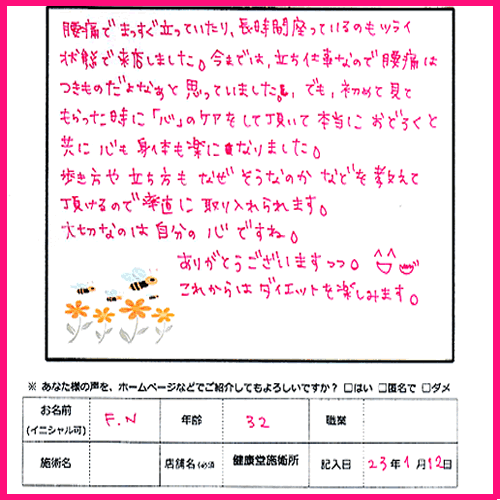 腰痛でまっすぐ立っていたり、長時間座っているのもツライ
状態で来店しました。今までは、立ち仕事なので腰痛は
つきものだよなぁと思っていました。でも、初めて見て
もらった時に「心」のケアをして頂いて本当におどろくと
共に心も身体も楽になりました。
歩き方や立ち方もなぜそうなのかなどを教えて
頂けるので素直に取り入れられます。
大切なのは自分の心ですね。
ありがとうございますっっ。
これからはダイエットを楽しみます。
※ あなた様の声を、ホームページなどでご紹介してもよろしいですか？ □はい □匿名で □ダメ
お名前 (イニシャル可) F.N 年齢 32 職業
施術名 店舗名(必須 健康堂施術所 記入日 23年1月12日